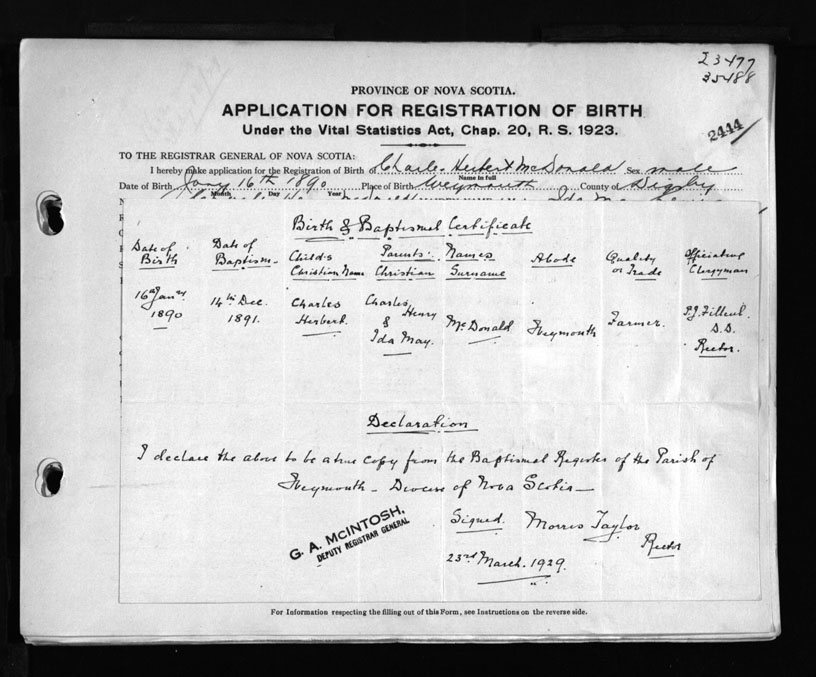 23477
35488
2444
PROVINCE OF NOVA SCOTIA.
APPLICATION FOR REGISTRATION OF BIRTH
Under the Vital Statistics Act, Chap. 20, R. S. 1923.
TO THE REGISTRAR GENERAL OF NOVA SCOTIA:
I hereby make application for the Registration of Birth of Charles Herbert McDonald Sex male
Name in full
Date of Birth Jany 16th 1890 Place of Birth Weymouth County of Digby
Month Day Year
Birth & Baptismal Certificate
Date of Birth Date of Baptism Child's Christian Name Parents' Names Christian Surname Abode Quality or Trade Officiating Clergyman
16th Jany 1890 14th Dec. 1891. Charles Herbert. Charles Henry & Ida May. McDonald Weymouth Farmer. P.J. Filleul. Rector.
Declaration
I declare the above to be a true copy from the Baptismal Register of the Parish of
Weymouth - Diocese of Nova Scotia -
Signed. Morris Taylor
Rector
G. A. McINTOSH,
DEPUTY REGISTRAR GENERAL
23rd March. 1929.
For Information respecting the filling out of this Form, see Instructions on the reverse side.